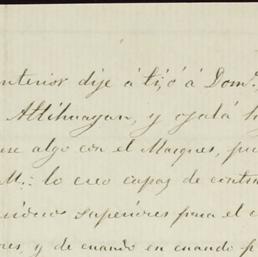 anterior dije á ti, ó á Dom.º
Altihuayan, y ojalá h
ese algo con el Marques, pu
M.: lo creo capaz de contin
superiores para el c
res, y de cuando en cuando p